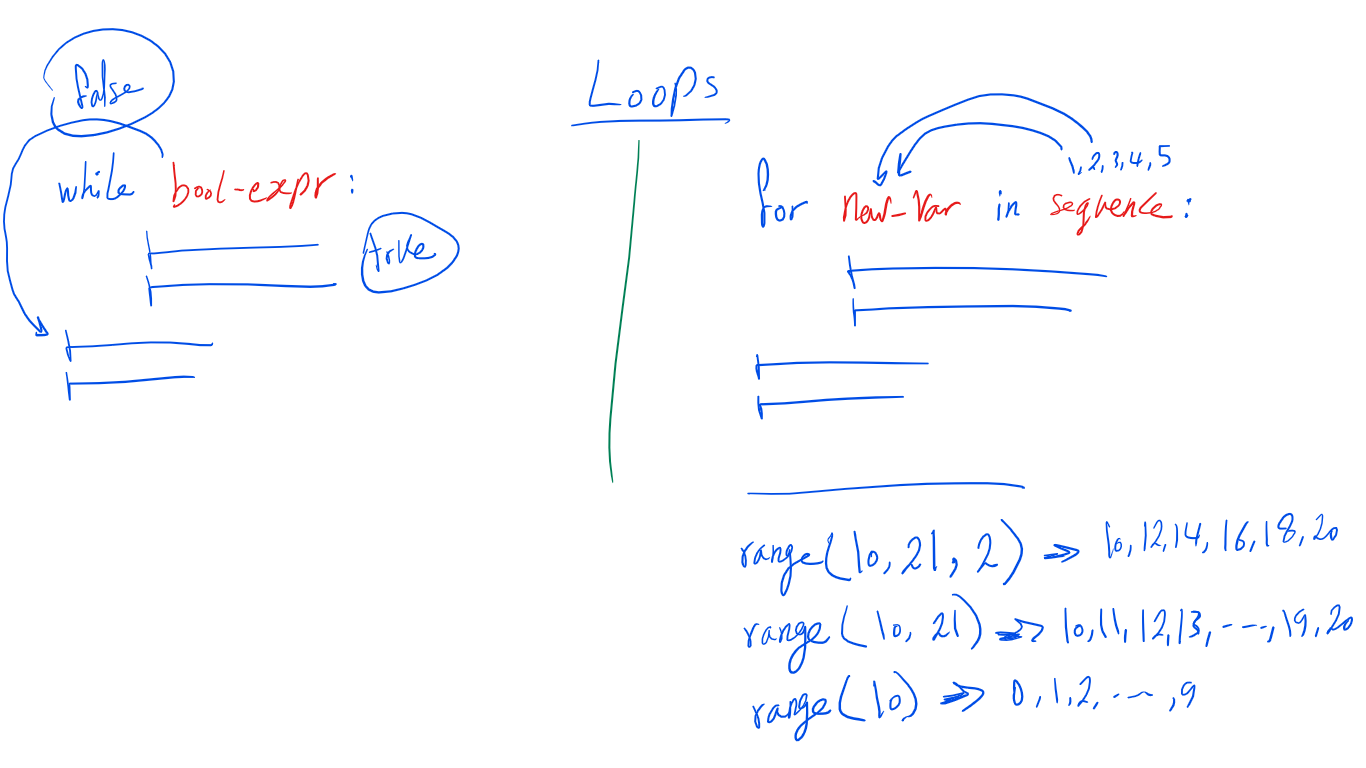 Loops
false
while bool-expr:
true
1, 2, 3, 4, 5
for new-var in sequence:
range(10, 21, 2) => 10, 12, 14, 16, 18, 20
range(10, 21) => 10, 11, 12, 13, ----, 19, 20
range(10) => 0, 1, 2, ---, 9